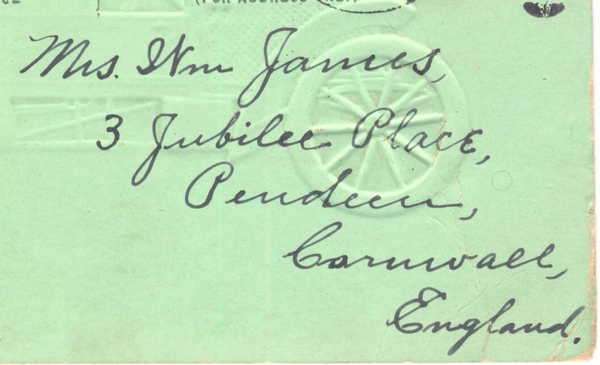 (FOR ADDRESS ONLY)
Mrs. Wm James,
3 Jubilee Place,
Pendeen,
Cornwall,
England.